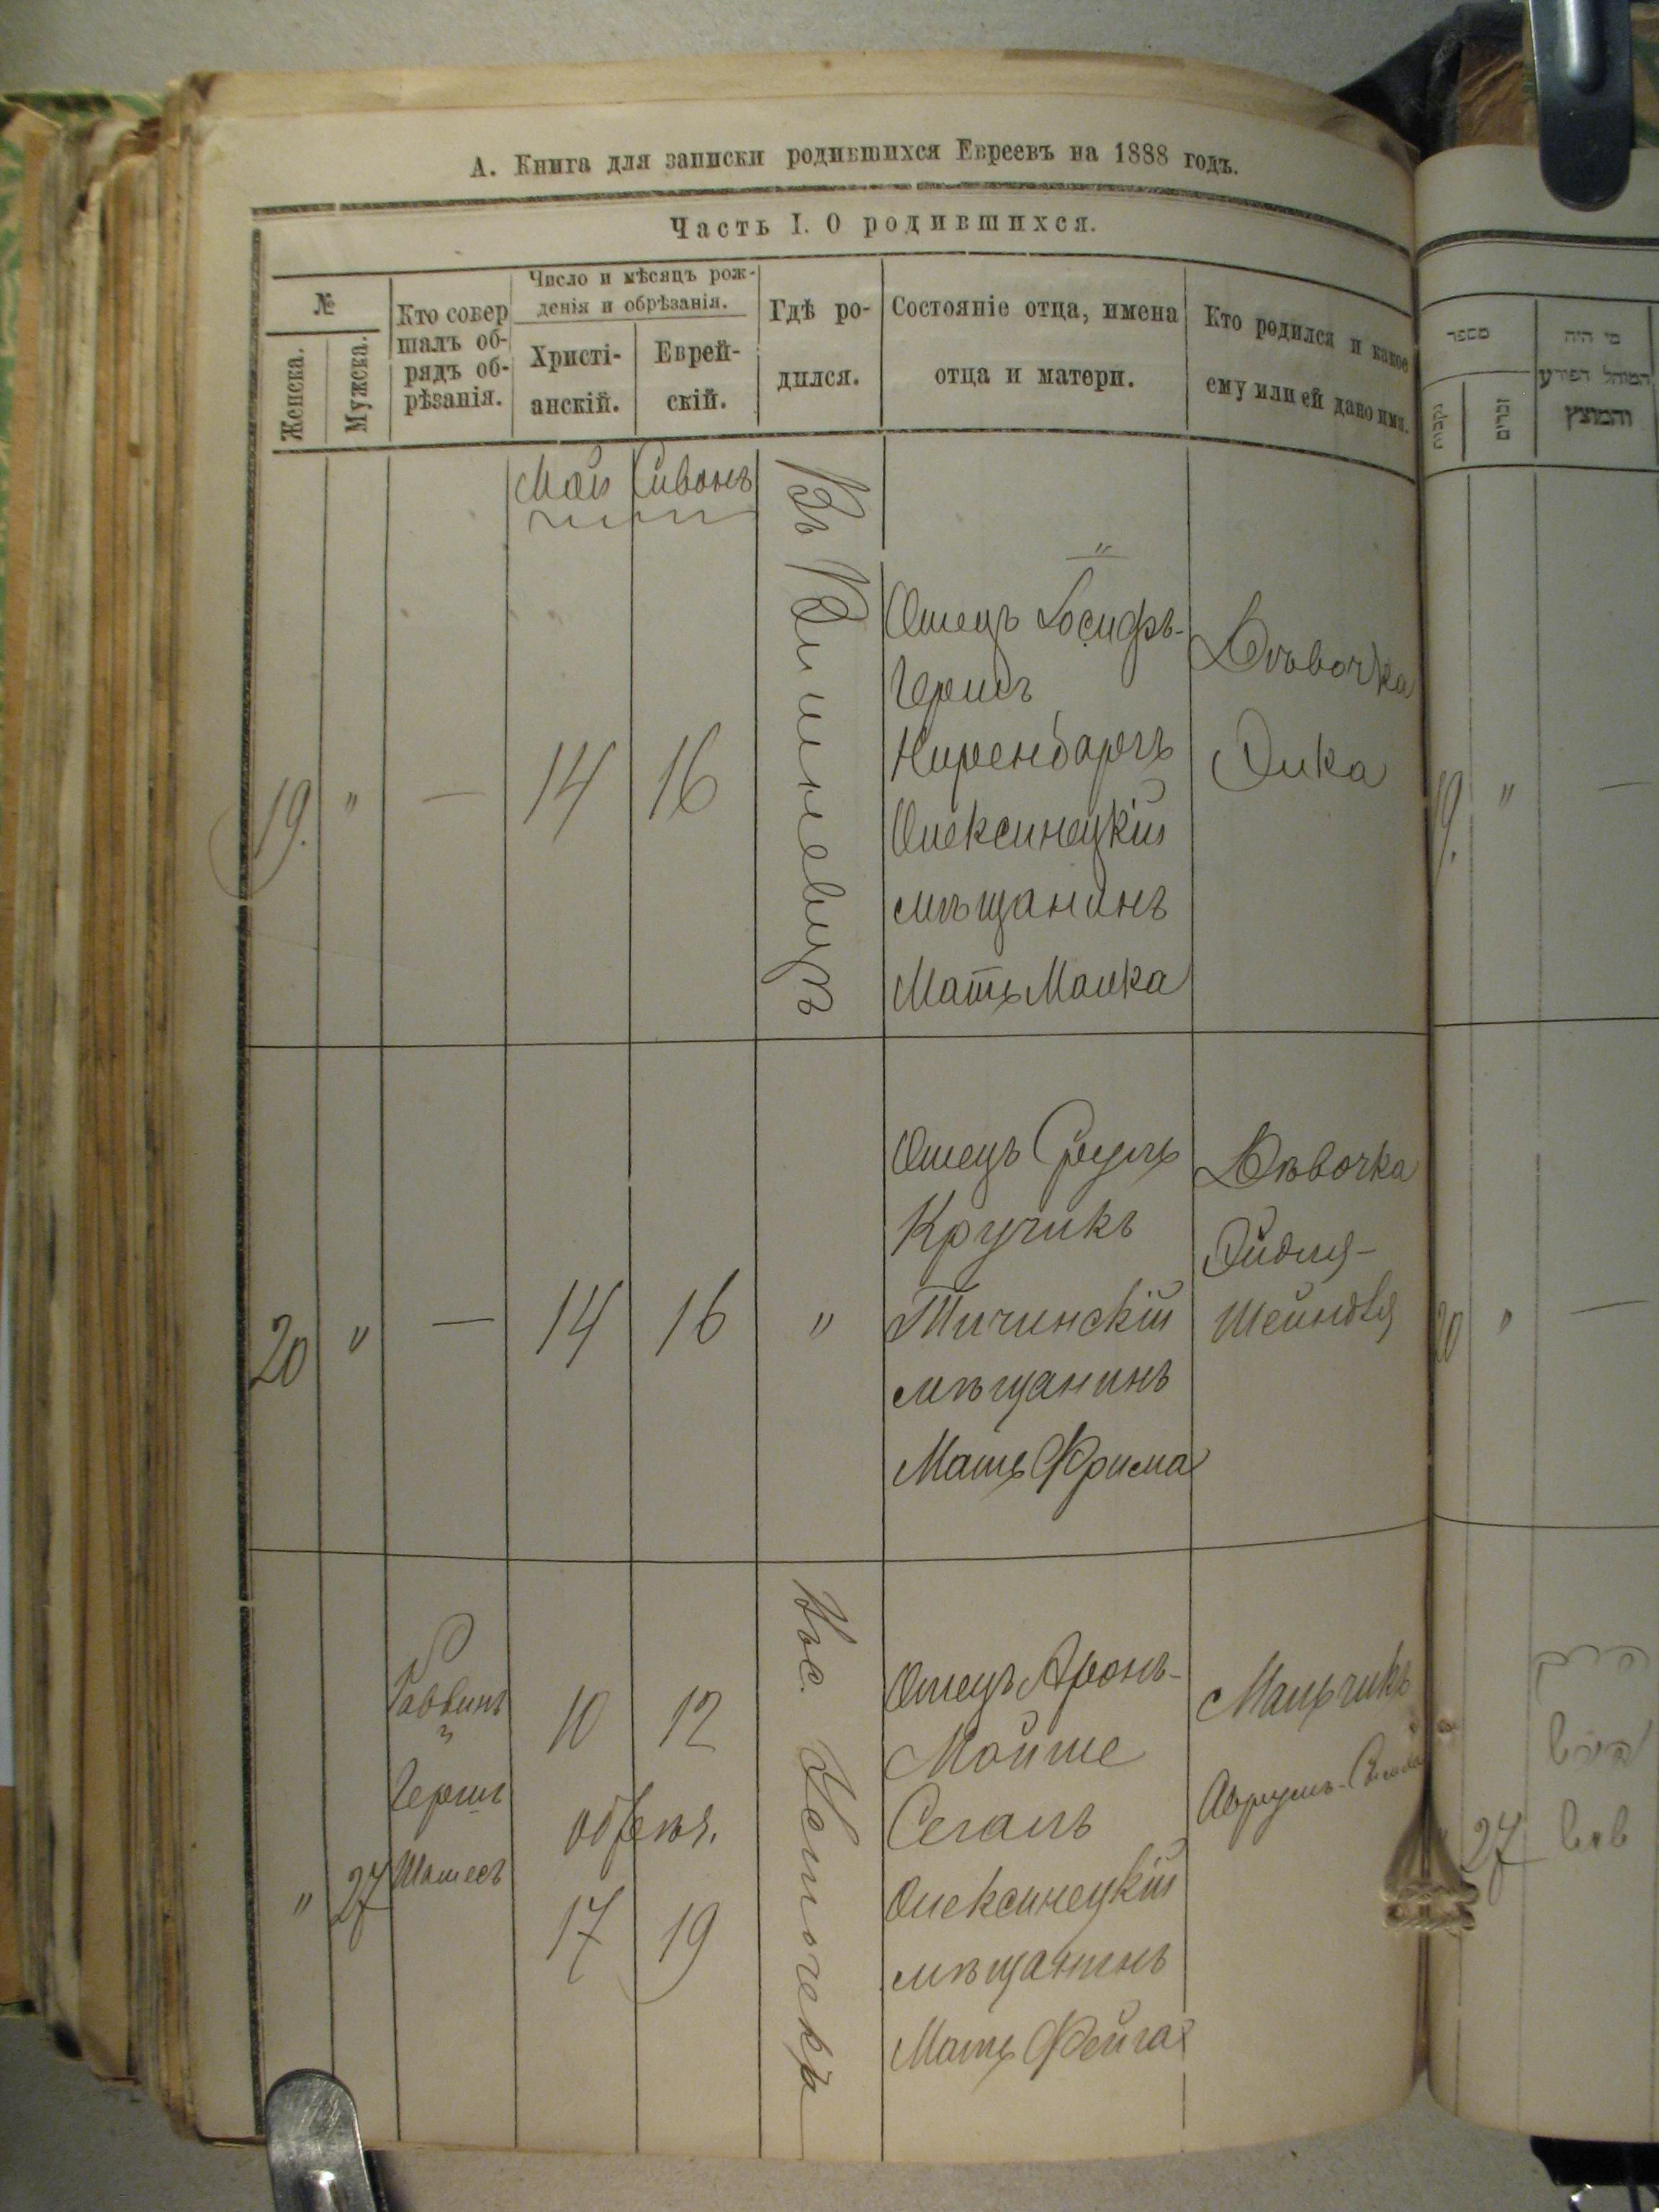 А. Книга для записки родившихся Евреевъ на 1888 годъ.
Часть I. О родившихся.
№
Женска.
Мужска.
Кто совер
шалъ об-
рядъ об-
рѣзанія.
Число и мѣсяцъ рож-
денія и обрѣзанія.
Христі-
анскій.
Еврей-
скій.
Гдѣ ро-
дился.
Состояніе отца, имена
отца и матери.
Кто родился и какое
ему или ей дано имя.
Май Сивонъ
19. " — 14 16
Въ
Отецъ Іосифъ-
Гершъ
Ниренбаргъ
Олексинецкій
мѣщанинъ
Мать Малка
Дѣвочка
Элка
20 " — 14 16 "
Отецъ Сруль
Кручикъ
Тичинскій
мѣщанинъ
Мать Фрима
Дѣвочка
Эйдля-
Шейндля
" 27
Раввинъ
Гершъ
10 12
обрѣз.
17 19
Отецъ Аронъ-
Мойше
Сегалъ
Олексинецкій
мѣщанинъ
Мать Фейга
Мальчикъ
מספר
נקבות
זכרים
מי היה
המוהל הפורע
והמוצץ
19. " —
20 " —
27